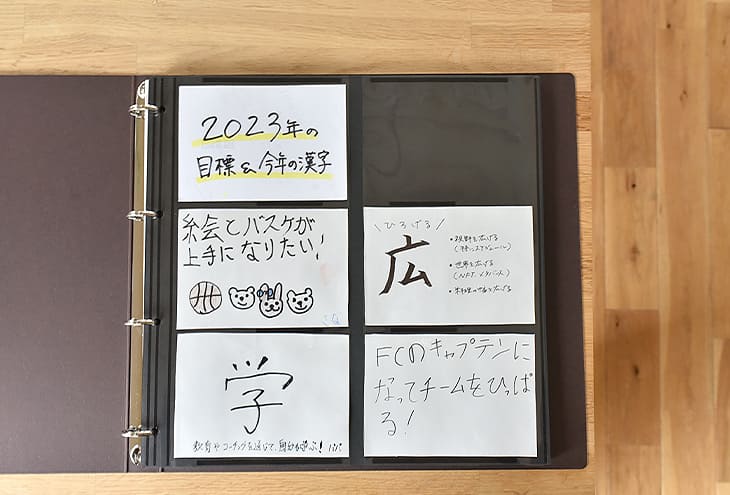 2023年の
目標&今年の漢字
絵会とバスケが
上手になりたい!
\ひろげる/
広
・視野を広げる
・世界を広げる
(NFT、メタバース)
学
教育やコーチングを通じて、自分も学ぶ!
FCのキャプテンに
なってチームをひっぱ
る!